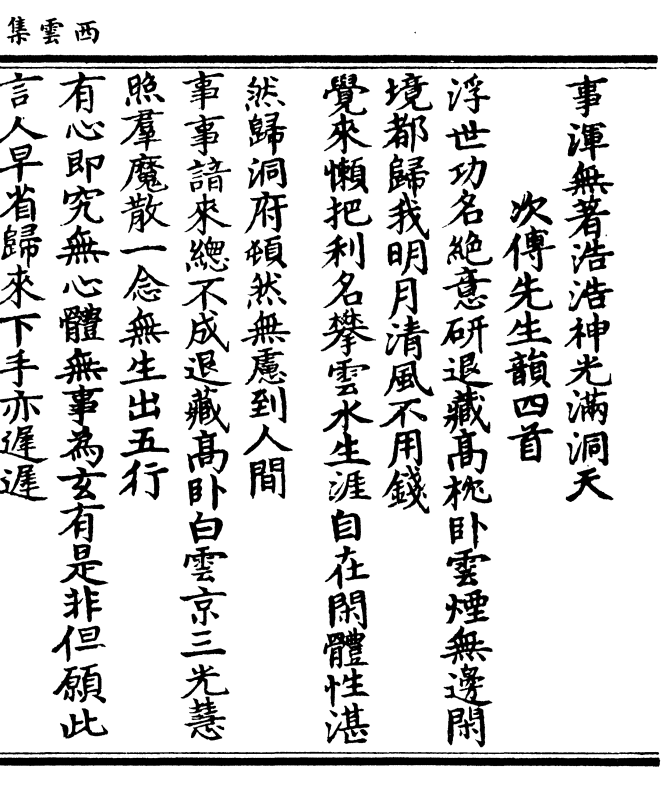 西雲集
事渾無著浩浩神光滿洞天
次傅先生韻四首
浮世功名絶意研退藏髙枕卧雲煙無邊閑
境都歸我明月清風不用錢
覺來懶把利名攀雲水生涯自在閑體性湛
然歸洞府頓然無慮到人間
事事諳來總不成退藏髙卧白雲京三光慧
照羣魔散一念無生出五行
有心即究無心體無事為玄有是非但願此
言人早省歸來下手亦遲遲